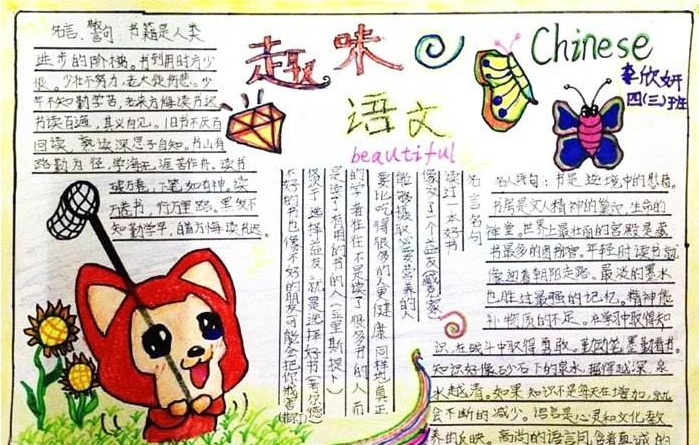 名言、警句: 书籍是人类
进步的阶梯。书到用时方少
恨。少壮不努力,老大徒伤悲。少
年不知勤学苦,老来方悔读书迟
书读百遍,其义自见。旧书不厌百
回读,熟读深思子自知。书山有
路勤为径,学海无涯苦作舟。读书
破万卷,下笔如有神。读
万卷书,行万里路。黑发不
知勤学早,白首方悔读书迟。
趣味
语文
beautiful
Chinese
李欣妍
四(三)班
名言名句
读过一本好书,
像交了个益友(臧克家)
能够摄取必要营养的人
要比吃得很多的人健康,同样地,真正
的学者往往不是读了很多书的人,而
是读了有用的书的人(亚里斯提卜)
选择益友,就是选择好书
不好的书也像不好的朋友可能会把你戕害
名人警句:书是逆境中的慰藉。
书房是文人精神的巢穴,生命的
禅堂。世界上最壮丽的宫殿是藏
书最多的图书馆。年轻时读书就
像迎着朝阳走路。最淡的墨水
也胜过最强的记忆。精神能
补物质的不足。在学习中取得知
识,在战斗中取得勇敢。勤动笔墨勤看书。
知识好像砂石下的泉水,掘得越深,泉
水越清。如果知识不是每天在增加,就
会不断的减少。语言是心灵和文化教
养的反映。高尚的语言同含着真诚的